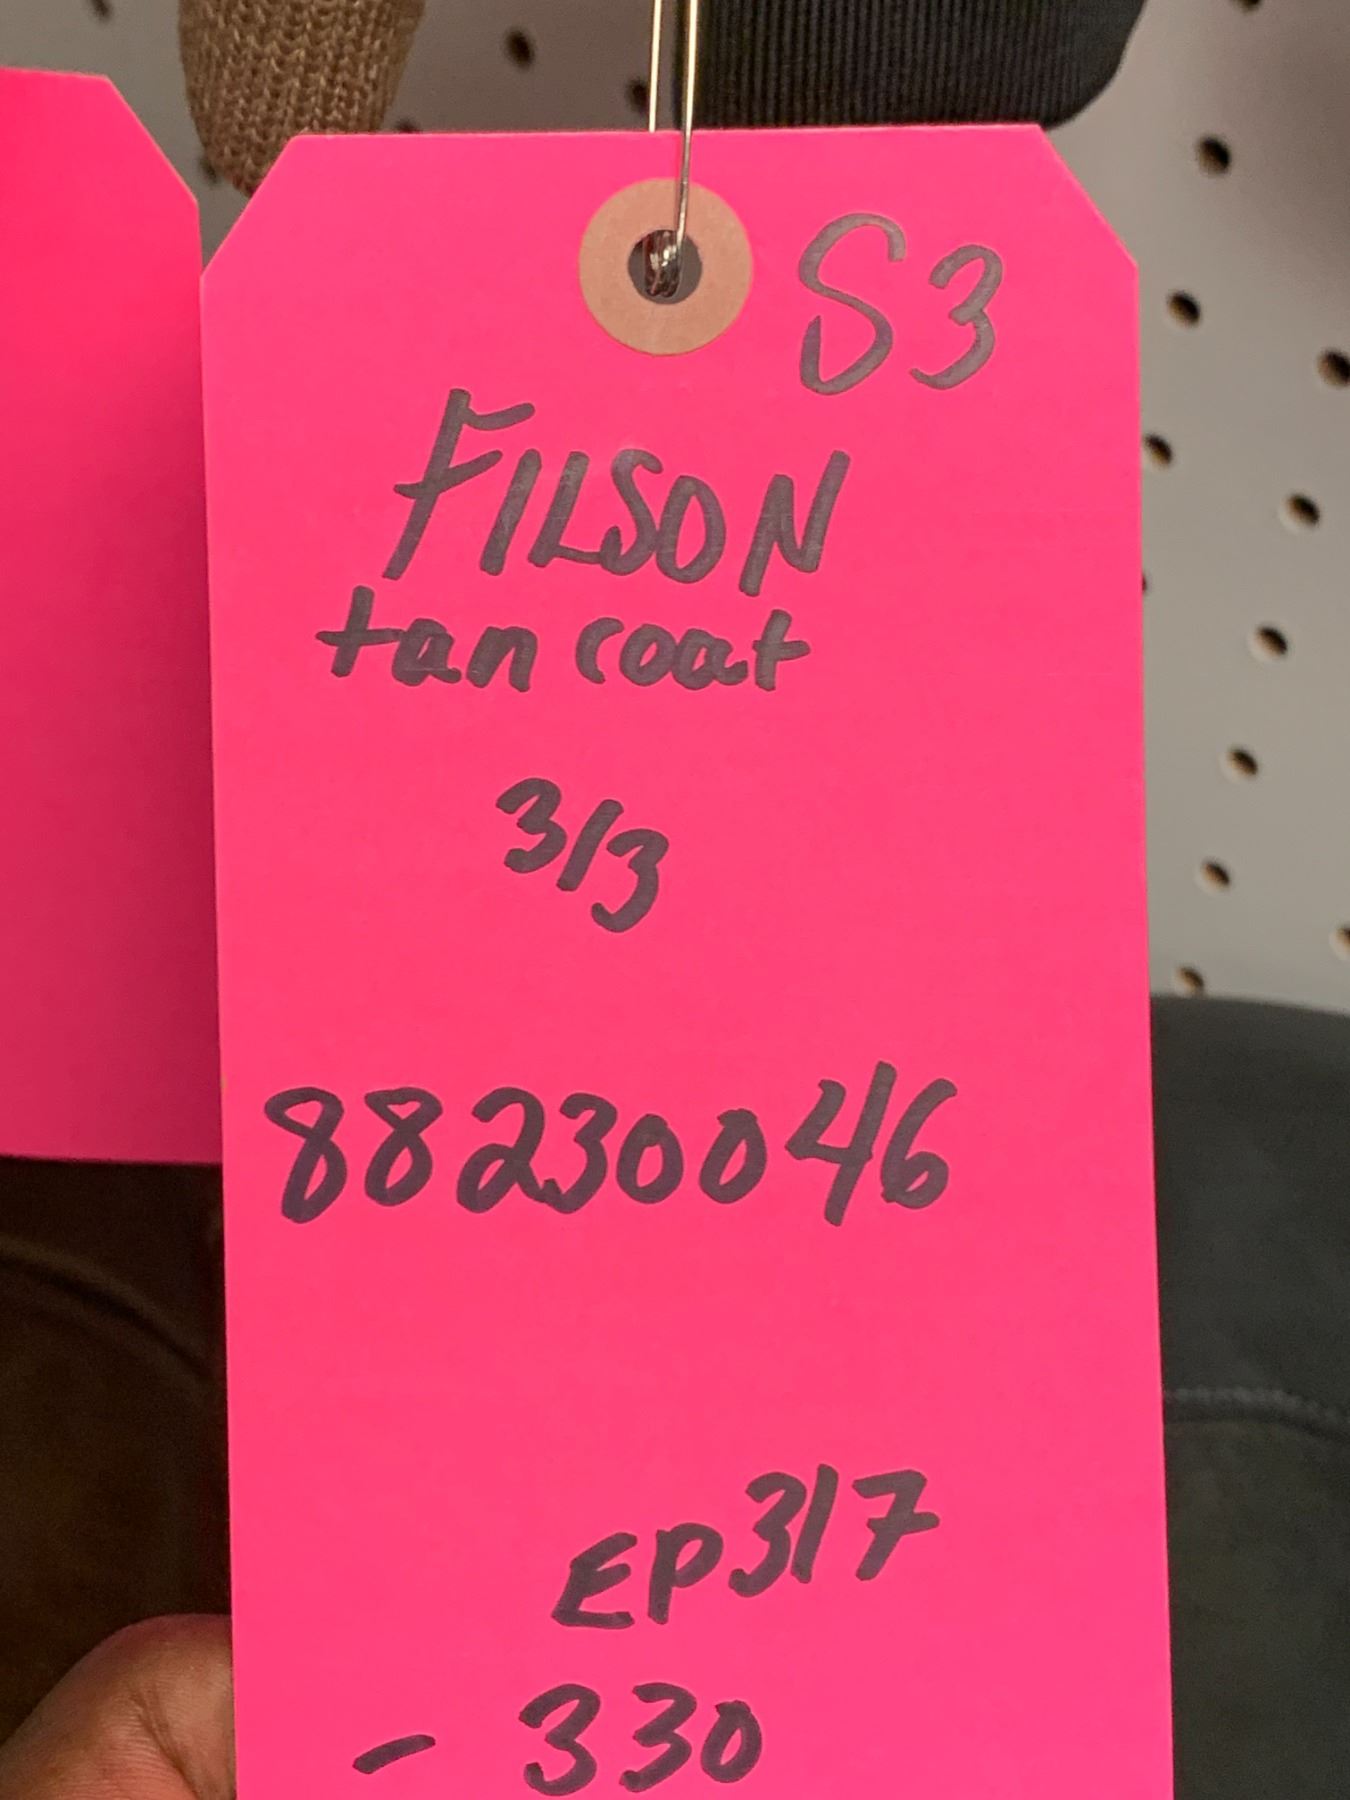 S3
FILSON
tan coat
3/3
88230046
EP317
- 330